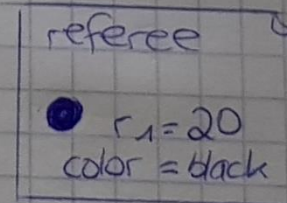 referee
r1=20
color = black